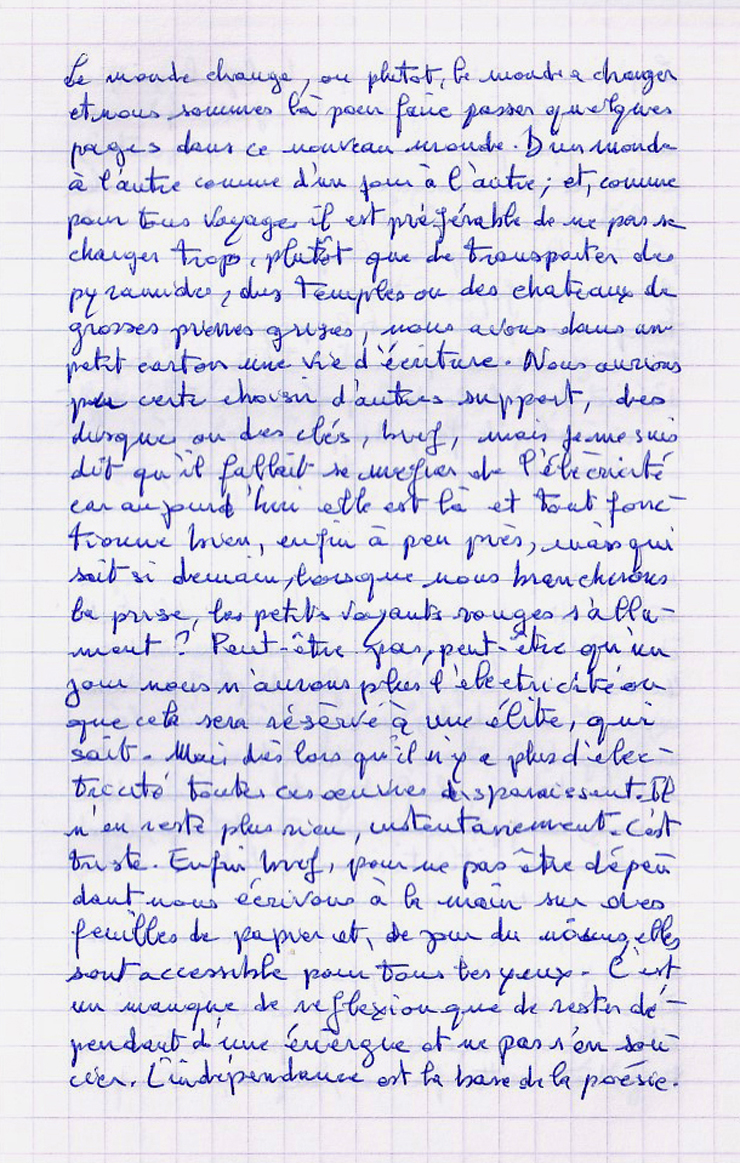 Le monde change, ou plutot, le monde a changer
et nous sommes là pour faire passer quelques
pages dans ce nouveau monde. D'un monde
à l'autre comme d'un jour à l'autre ; et, comme
pour tous voyages il est préférable de ne pas se
charger trop, plutôt que de transporter des
pyramides, des temples ou des chateaux de
grosses pierres grises, nous avons dans un
petit carton une vie d'écriture. Nous aurions
pu certe choisir d'autres support, des
disques ou des clés, bref, mais je me suis
dit qu'il fallait se mefier de l'électricité
car aujourd'hui elle est là et tout fonc-
tionne bien, enfin à peu près, mais qui
sait si demain, lorsque nous brancherons
la prise, les petits voyants rouges s'allu-
ment ? Peut-être pas, peut-être qu'un
jour nous n'aurons plus l'electricité ou
que cela sera réservé à une élite, qui
sait. Mais dès lors qu'il n'y a plus d'élec-
tricité toutes ces œuvres disparaissent. Il
n'en reste plus rien, instentanement. C'est
triste. Enfin bref, pour ne pas être dépen
dant nous écrivons à la main sur des
feuilles de papier et, de jour du moins, elles
sont accessible pour tous les yeux. C'est
un manque de reflexion que de rester dé-
pendant d'une énergie et ne pas s'en sou
cier. L'indépendance est la base de la poésie.